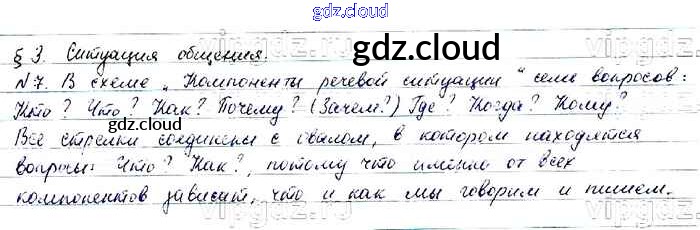 gdz.cloud
§ 3. Ситуация общения.
gdz.cloud
№7. В схеме „Компоненты речевой ситуации" семь вопросов:
Кто? Что? Как? Почему? (Зачем?) Где? Когда? Кому?
gdz.cloud
Все стрелки соединены с овалом, в котором находятся
вопросы: Что? Как?, потому что именно от всех
компонентов зависит, что и как мы говорим и пишем.
vipgdz.ru